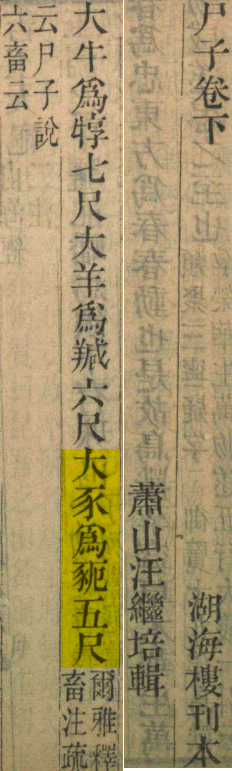 尸子卷下 湖海樓刊本
蕭山汪繼培輯
大牛爲犉七尺大羊爲羬六尺大豕爲豟五尺
爾雅釋
畜注疏
云尸子說
六畜云